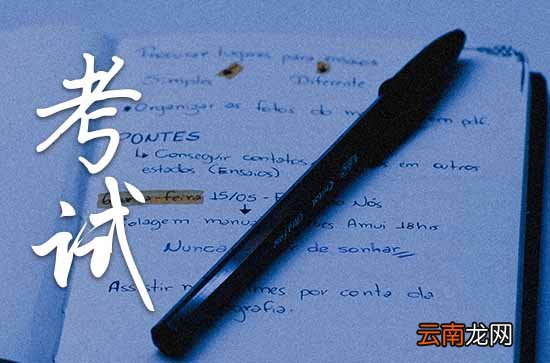 考试
Procurar lugares para ensaios
Simples Diferente
• Organizar as fotos do em pdf.
PONTES
↳ Conseguir contatos em outros
estados (Ensaios)
15/05 - Nós
manual Amui 18hrs
Nunca de sonhar
Assistir por conta da
云南龙网